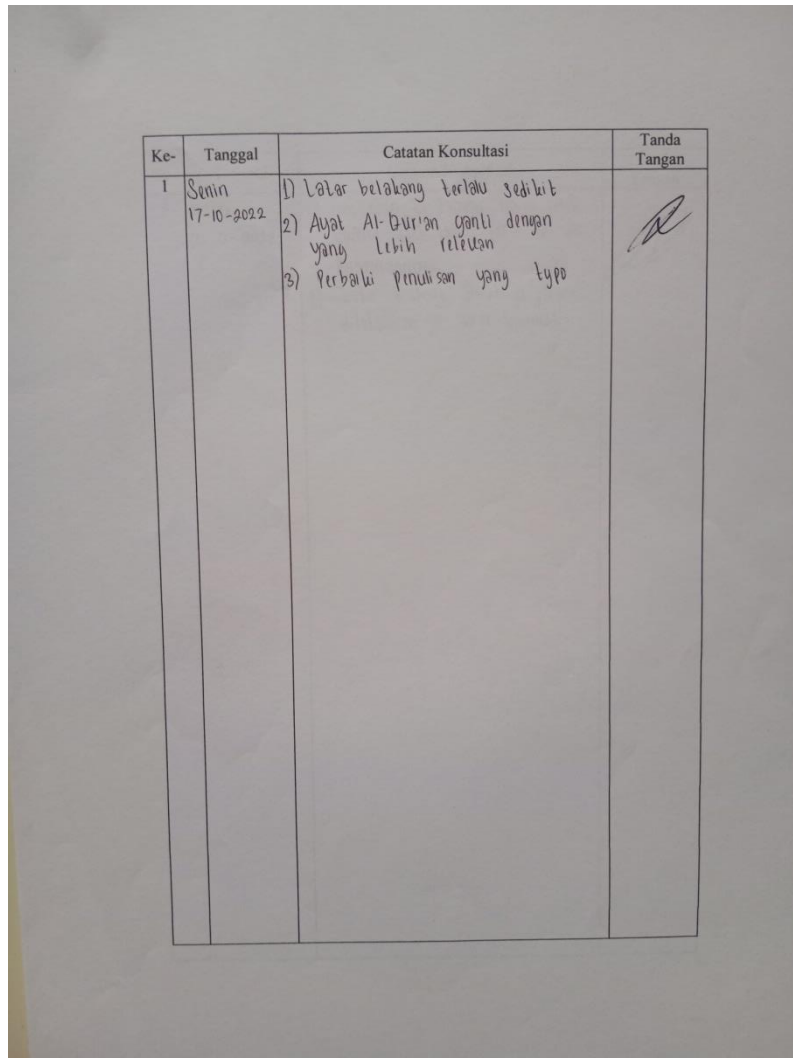 Ke- Tanggal Catatan Konsultasi Tanda Tangan
1 Senin 1) Latar belakang terlalu sedikit
17-10-2022 2) Ayat Al-Qur'an ganti dengan
yang lebih relevan
3) Perbaiki penulisan yang typo